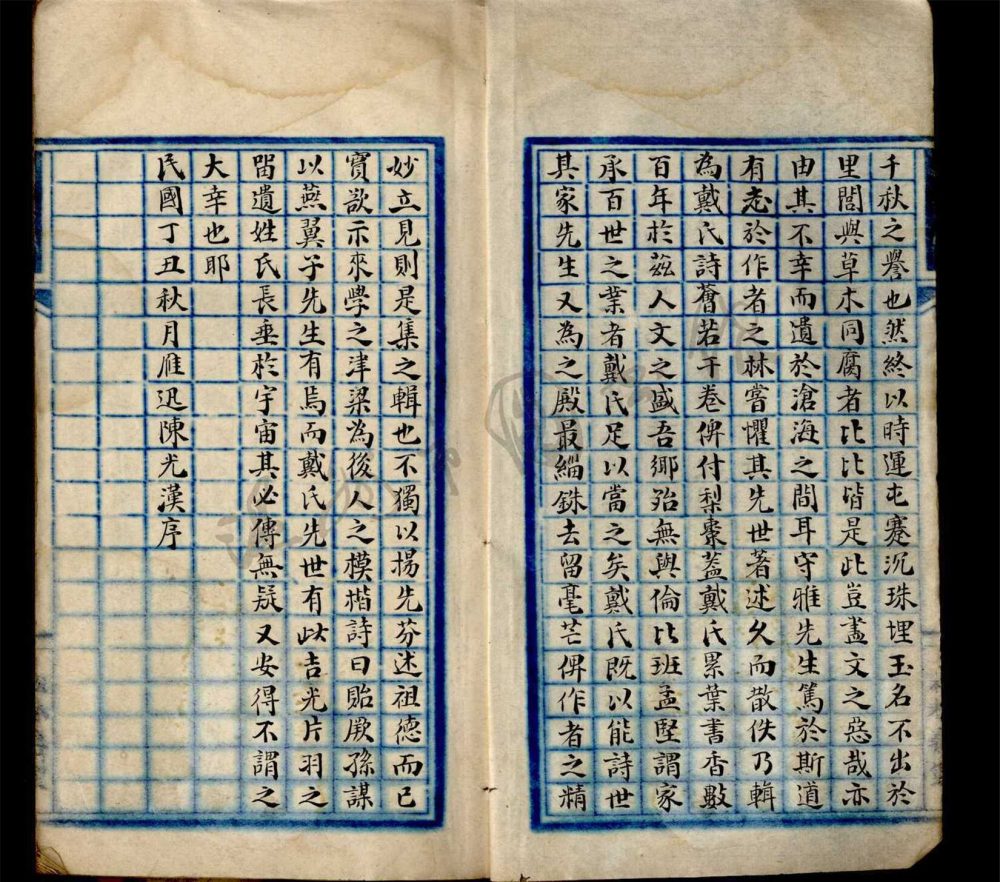 千秋之譽也然終以時運屯蹇沉珠埋玉名不出於
里閭與草木同腐者比比皆是此豈盡文之惡哉亦
由其不幸而遺於滄海之間耳守雅先生篤於斯道
有志於作者之林嘗懼其先世著述久而散佚乃輯
為戴氏詩薈若干卷俾付梨棗蓋戴氏累葉書香數
百年於茲人文之盛吾鄉殆無與倫比班孟堅謂家
承百世之業者戴氏足以當之矣戴氏既以能詩世
其家先生又為之殿最緇銖去留毫芒俾作者之精
妙立見則是集之輯也不獨以揚先芬述祖德而已
實欲示來學之津梁為後人之模楷詩曰貽厥孫謀
以燕翼子先生有焉而戴氏先世有此吉光片羽之
留遺姓氏長垂於宇宙其必傳無疑又安得不謂之
大幸也耶
民國丁丑秋月雁迅陳光漢序